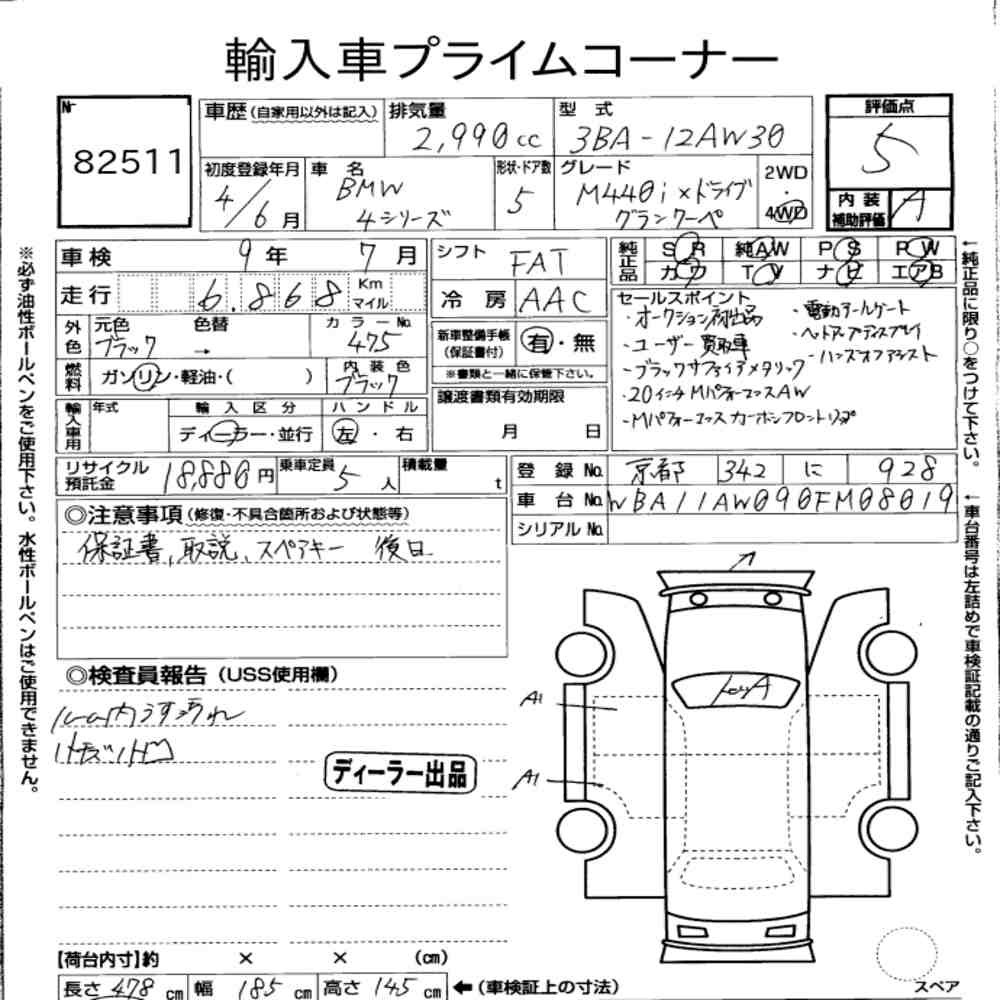 輸入車プライムコーナー
№
82511
車歴 (自家用以外は記入)
排気量
2,990cc
型式
3BA-12AW30
評価点
5
内装
補助評価
A
初度登録年月
4/6月
車名
BMW
4シリーズ
形状・ドア数
5
グレード
M440i xドライブ
グランクーペ
2WD
・
4WD
車検
9年 7月
走行
6.868
Km
マイル
外色
元色
ブラック
色替
→
カラーNo.
475
燃料
ガソリン・軽油・( )
内装色
ブラック
輸入車用
年式
輸入区分
ディーラー・並行
ハンドル
左・右
シフト
FAT
冷房
AAC
新車整備手帳
(保証書付)
有・無
※書類と一緒に保管下さい。
譲渡書類有効期限
月 日
純正品
SR 純AW PS PW
カワ TV ナビ エアB
セールスポイント
・オークション初出品
・ユーザー買取車
・ブラックサファイアメタリック
・20インチMパフォーマンスAW
・Mパフォーマンスカーボンフロントリップ
・電動テールゲート
・ヘッドアップディスプレイ
・ハンズオフアシスト
リサイクル
預託金
18,880円
乗車定員
5人
積載量
t
登録No.
京都 342 に 928
車台No.
WBA11AW090FM08019
シリアルNo.
◎注意事項(修復・不具合箇所および状態等)
保証書、取説、スペアキー 後日
◎検査員報告(USS使用欄)
ルーム内うすヨゴレ
ディーラー出品
A1
A1
【荷台内寸】約 × × (cm)
長さ 478 cm 幅 185 cm 高さ 145 cm ←(車検証上の寸法)
スペア
※必ず油性ボールペンをご使用下さい。水性ボールペンはご使用できません。
←純正品に限り○をつけて下さい。
←車台番号は左詰めで車検証記載の通りご記入下さい。